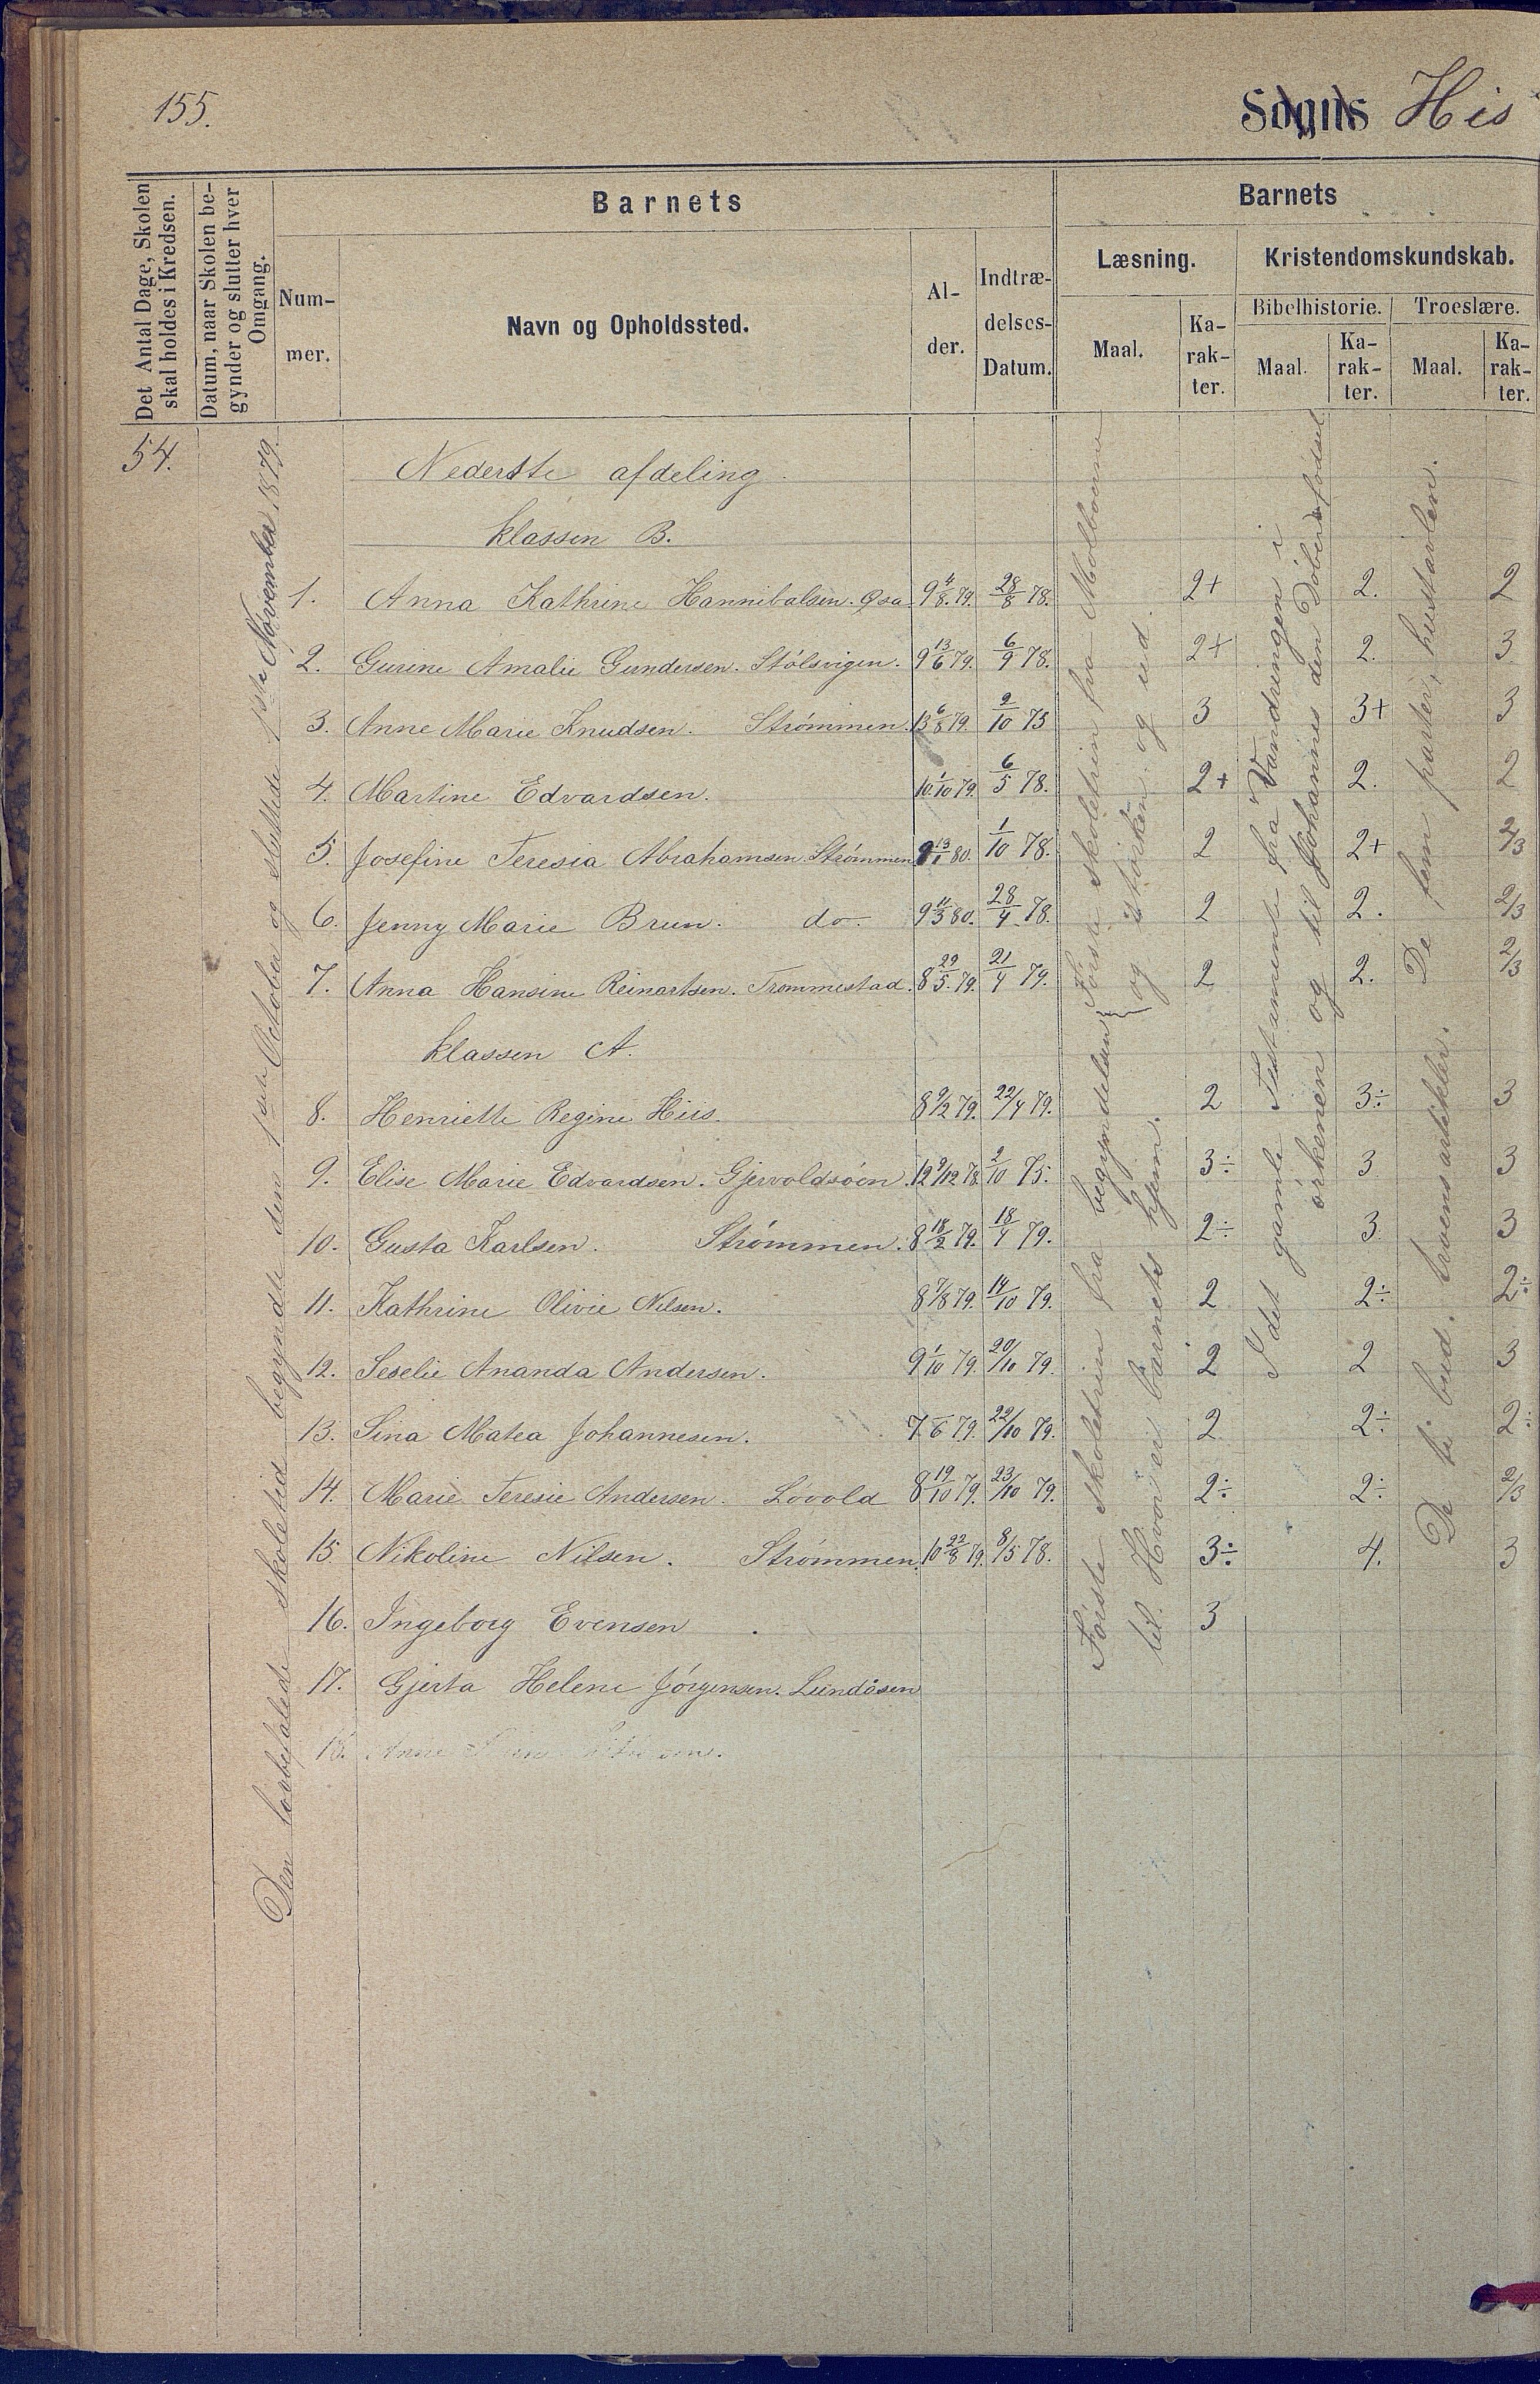 155.
Sogns His
Det Antal Dage, Skolen skal holdes i Kredsen.
Datum, naar Skolen begynder og slutter hver Omgang.
Barnets
Nummer.
Navn og Opholdssted.
Alder.
Indtrædelses-Datum.
Barnets
Læsning.
Maal.
Karakter.
Kristendomskundskab.
Bibelhistorie.
Maal.
Karakter.
Troeslære.
Maal.
Karakter.
54.
Den lovbefalede skoletid begyndte den 1ste October og sluttede 1ste November 1879.
Nederste afdeling.
klassen B.
1. Anna Kathrine Hannibalsen. 9 4/8 79. 28/8 78. 2+ 2. 2
2. Gurine Amalie Gundersen. Stölsvigen. 9 13/6 79. 6/9 78. 2+ 2. 3
3. Anne Marie Knudsen. Strömmen. 13 6/8 79. 2/10 73 3 3+ 3
4. Martine Edvardsen. 10. 1/10 79. 6/5 78. 2+ 2. 2
5. Josefine Teresia Abrahamsen. Strömmen 9 13/1 80. 1/10 78. 2 2+ 2/3
6. Jenny Marie Brun. do. 9 11/3 80. 28/4 78. 2 2. 2/3
7. Anna Hansine Reinartsen. Trommestad. 8 29/5 79. 21/4 79. 2 2. 2/3
klassen A.
8. Henriette Regine Hiis. 8 9/2 79. 22/4 79. 2 3÷ 3
9. Elise Marie Edvardsen. Gjervoldsöen. 12 9/12 78. 2/10 75. 3÷ 3 3
10. Gusta Karlsen. Strömmen. 8 18/2 79. 18/4 79. 2÷ 3 3
11. Kathrine Olivie Nilsen. 8 7/8 79. 14/10 79. 2 2÷ 2÷
12. Seselie Ananda Andersen. 9 1/10 79. 20/10 79. 2 2 3
13. Sina Matea Johannesen. 7 -/6 79. 22/10 79. 2 2÷ 2÷
14. Marie Teresie Andersen. Lövold 8 19/10 79. 23/10 79. 2÷ 2÷ 2/3
15. Nikoline Nilsen. Strömmen. 10 22/8 79. 8/5 78. 3÷ 4. 3
16. Ingeborg Evensen. 3
17. Gjerta Helene Jörgensen. Lundösen
18. Anne
Förste skoletrin fra Molboerne
og störken og ud.
Förste skoletrin fra begyndelsen
til Hvor er barnets hjem.
I det gamle Testamente fra Vandringen i
örkenen og til Johannes den Döbers födsel
De fem parter, hustavlen.
De ti bud. troens artikler.